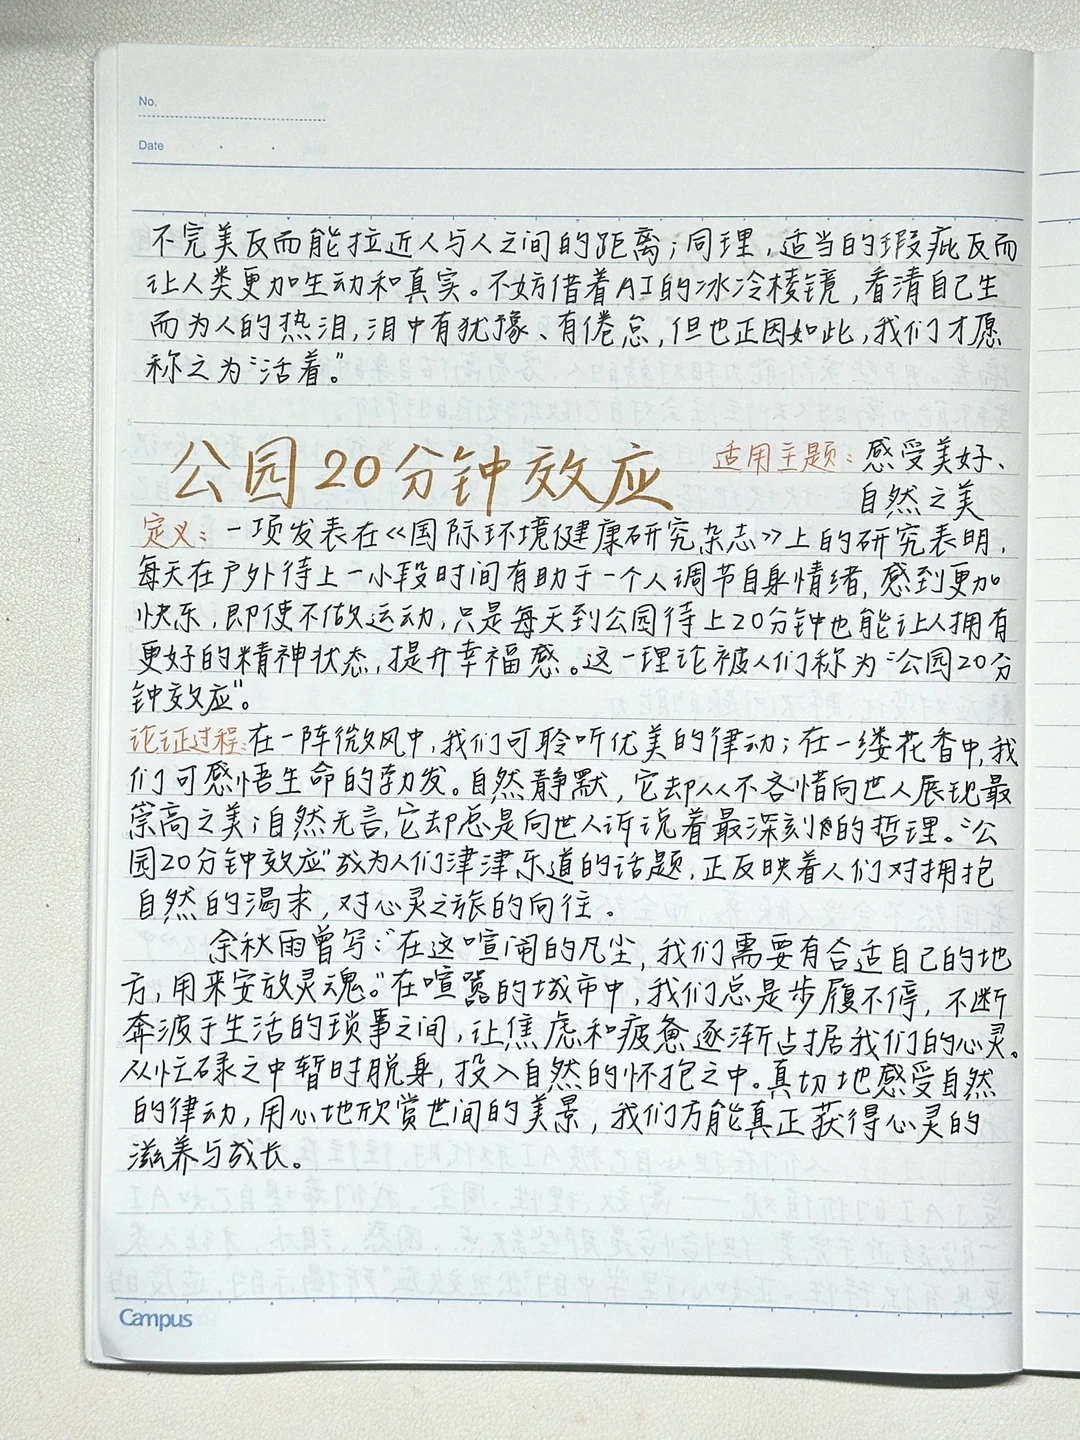 No.
Date
不完美反而能拉近人与人之间的距离；同理，适当的瑕疵反而
让人类更加生动和真实。不妨借着AI的冰冷棱镜，看清自己生
而为人的热泪，泪中有犹豫、有倦怠，但也正因如此，我们才愿
称之为“活着。”
公园20分钟效应
适用主题：感受美好、
自然之美
定义：一项发表在《国际环境健康研究杂志》上的研究表明，
每天在户外待上一小段时间有助于一个人调节自身情绪，感到更加
快乐，即使不做运动，只是每天到公园待上20分钟也能让人拥有
更好的精神状态，提升幸福感。这一理论被人们称为“公园20分
钟效应”。
论证过程：在一阵微风中，我们可聆听优美的律动；在一缕花香中，我
们可感悟生命的勃发。自然静默，它却从不吝惜向世人展现最
崇高之美；自然无言，它却总是向世人诉说着最深刻的哲理。“公
园20分钟效应”成为人们津津乐道的话题，正反映着人们对拥抱
自然的渴求，对心灵之旅的向往。
余秋雨曾写：“在这喧闹的凡尘，我们需要有合适自己的地
方，用来安放灵魂。”在喧嚣的城市中，我们总是步履不停，不断
奔波于生活的琐事之间，让焦虑和疲惫逐渐占据我们的心灵。
从忙碌之中暂时脱身，投入自然的怀抱之中。真切地感受自然
的律动，用心地欣赏世间的美景，我们方能真正获得心灵的
滋养与成长。
Campus